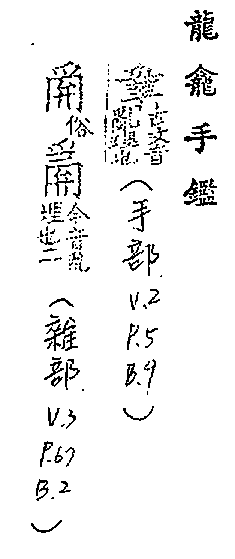 龍龕手鑑
古文音亂理也(手部 V.2 P.5 B.9)
俗 今音亂理也二(雜部 V.3 P.67 B.2)